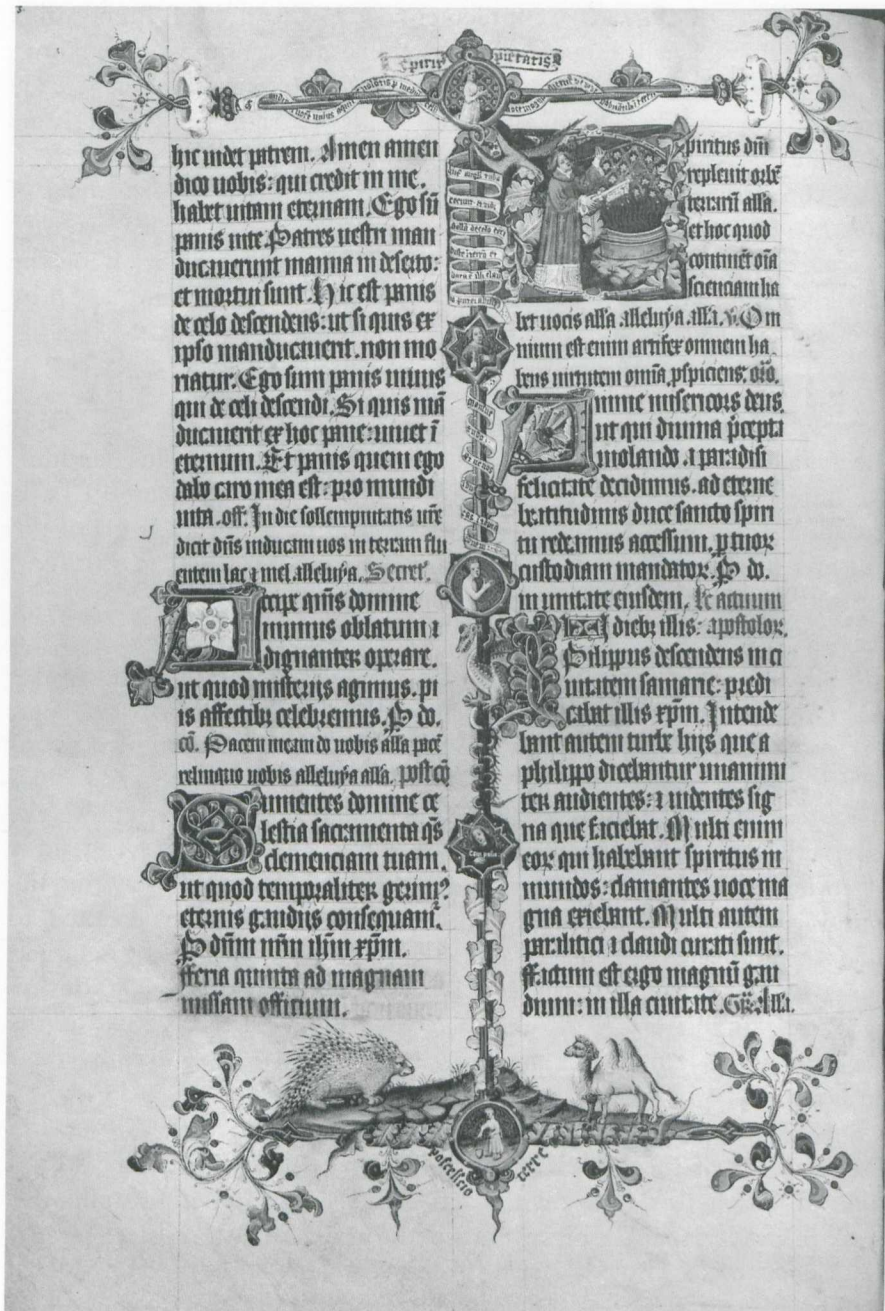 Spirit pietatis
hic uidet patrem. Amen amen
dico uobis: qui credit in me.
habet uitam eternam. Ego sū
panis uite. Patres uestri man
ducauerunt manna in deserto:
et mortui sunt. Hic est panis
de celo descendens: ut si quis ex
ipso manducauerit. non mo
riatur. Ego sum panis uiuus
qui de celi descendi. Si quis mā
ducauerit ex hoc pane: uiuet ī
eternum. Et panis quem ego
dabo caro mea est: pro mundi
uita. off. In die sollempnitatis ur̄e
dicit dn̄s inducam uos in terram flu
entem lac ⁊ mel. alleluya. Secret̄.
Accipe qm̄s domine
munus oblatum ⁊
dignanter operare.
ut quod misterijs agimus. pi
is affectibꝫ celebremus. P do.
cō. Pacem meam do uobis alla pacē
relinquo uobis alleluya alla. post cō
Sumentes domine ce
lestia sacramenta qs̄
clemenciam tuam.
ut quod temporaliter gerimꝰ
eternis gaudijs consequamr̄.
P dūm nr̄m ih̄m xp̄m.
fferia quinta ad magnam
missam officium.
Spiritus dn̄i
repleuit orbē
terrarū alla.
et hoc quod
continēt oīa
scienciam ha
bet uocis alla alleluya. alla. v. Om
nium est enim artifex omnem ha
bens uirtutem omīa pspiciens. or̄o.
Annue misericors deus.
ut qui diuina p̄cepta
uiolando. a paradisi
felicitate decidimus. ad eterne
beatitudinis duce sancto spiri
tu redeamus accessum. p tuoꝝ
custodiam mandatoꝝ. P do.
in unitate eiusdem. Lc actuum
In diebꝫ illis: apostoloꝝ.
Philippus descendens in ci
uitatem samarie: predi
cabat illis xp̄m. Intende
bant autem turbe hijs que a
philippo dicebantur unanimi
ter audientes: ⁊ uidentes sig
na que faciebat. Multi enim
eoꝝ qui habebant spiritus in
mundos: clamantes uoce ma
gna exiebant. Multi autem
paralitici ⁊ claudi curati sunt.
ffactum est ergo magnū gau
dium: in illa ciuitate. Gr̄. Alla.
possessio terre